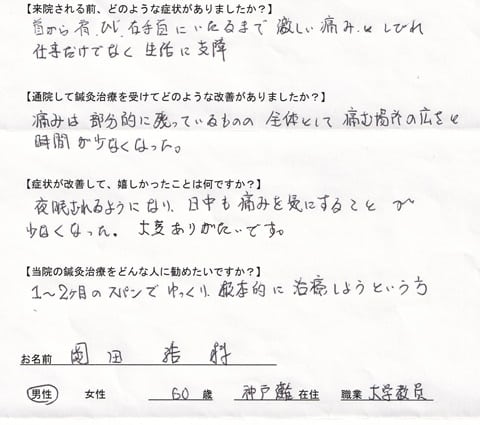 【来院される前、どのような症状がありましたか?】
首から肩、ひじ、右手首にいたるまで 激しい痛みとしびれ
仕事だけでなく 生活に支障
【通院して鍼灸治療を受けてどのような改善がありましたか?】
痛みは 部分的に残っているものの 全体として 痛む場所の広さと
時間が少なくなった。
【症状が改善して、嬉しかったことは何ですか?】
夜眠れるようになり、日中も 痛みを気にすること が
少なくなった。大変ありがたいです。
【当院の鍼灸治療をどんな人に勧めたいですか?】
1〜2ヶ月のスパンで ゆっくり 根本的に 治癒しようという方
お名前 岡田 浩
男性 女性 60 歳 神戸 在住 職業 大学教員